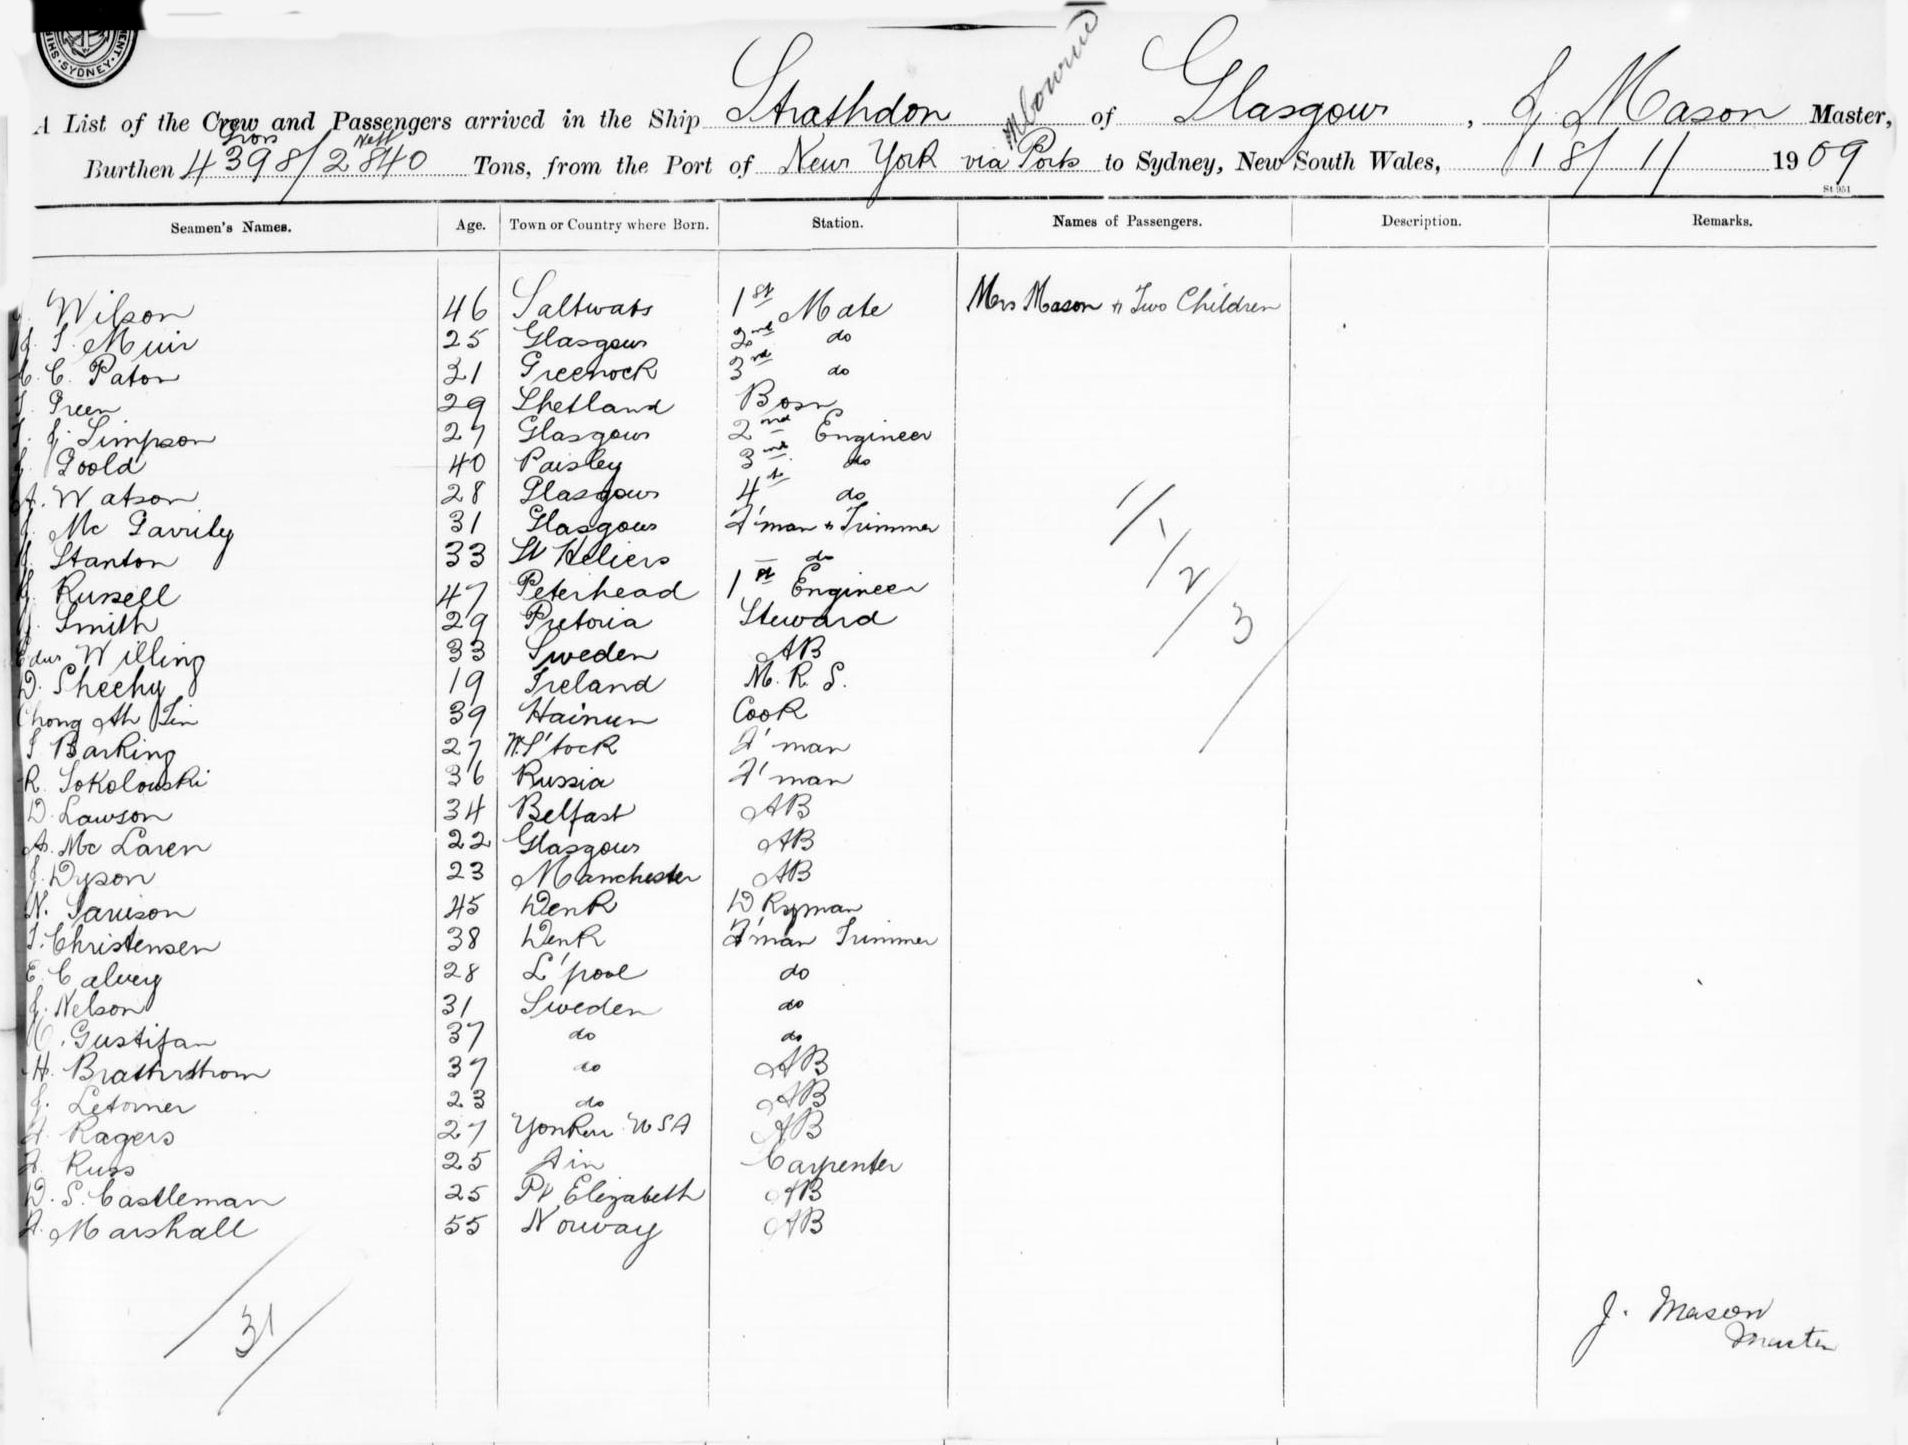 SYDNEY
A List of the Crew and Passengers arrived in the Ship Strathdon of Glasgow, J Mason Master,
Burthen 4398/2840 Tons, from the Port of New York via Ports to Sydney, New South Wales, 18/1/1909
Gross Nett
St 951
Seamen's Names. Age. Town or Country where Born. Station. Names of Passengers. Description. Remarks.
Wilson 46 Saltwats 1st Mate Mrs Mason & Two Children
J. S. Muir 25 Glasgow 2nd do
C. C. Paton 31 Greenock 3rd do
Green 29 Shetland Bosn
J. Simpson 27 Glasgow 2nd Engineer
J. Goold 40 Paisley 3rd do
A. Watson 28 Glasgow 4th do
J. Mc Garrity 31 Glasgow F'man & Trimmer
Stanton 33 St Heliers do
Russell 47 Peterhead 1st Engineer
J. Smith 29 Pretoria Steward
Edw Willing 33 Sweden AB
D. Sheehy 19 Ireland M. R. S.
Chong Ah Lin 39 Hainun Cook
Barking 27 W. S'tock F'man
R. Sokolowski 36 Russia F'man
D. Lawson 34 Belfast AB
A. Mc Laren 22 Glasgow AB
J. Dyson 23 Manchester AB
N. 45 Denk D Kyman
Christensen 38 Denk F'man Trimmer
E. Calvey 28 L'pool do
J. Nelson 31 Sweden do
C. Gustifan 37 do do
H. 37 do AB
J. Letorner 23 do AB
Ragers 27 Yonker USA AB
Russ 25 Carpenter
D. S. Castleman 25 Pt Elizabeth AB
A. Marshall 55 Norway AB
1/1/2/3
31
J. Mason
Master